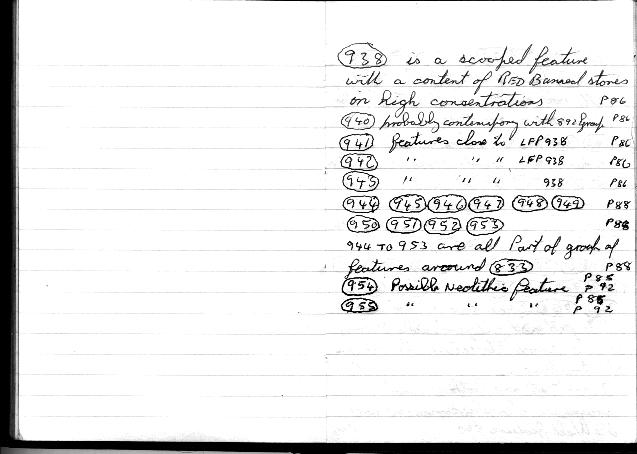 938 is a scooped feature
with a content of RED Banned stones
on high consentrations P86
940 probably contempory with 892 group P86
941 features close to LFP938 P86
942 " " " LFP938 P86
943 " " " 938 P86
944 945 946 947 948 949 P88
950 951 952 953 P88
944 TO 953 are all Part of group of
features arround 833 P88
954 Possible Neolithic feature P85 P92
955 " " " P86 P92